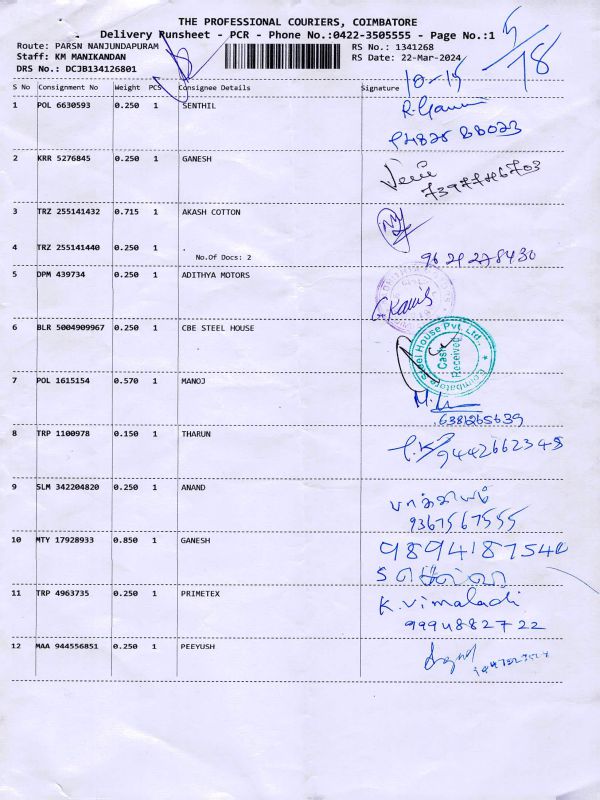 THE PROFESSIONAL COURIERS, COIMBATORE
Delivery Runsheet - PCR - Phone No.:0422-3505555 - Page No.:1
Route: PARSN NANJUNDAPURAM
RS No.: 1341268
Staff: KM MANIKANDAN
RS Date: 22-Mar-2024
DRS No.: DCJB134126801
5/18
10-15
S No Consignment No Weight PCS Consignee Details Signature
1 POL 6630593 0.250 1 SENTHIL
2 KRR 5276845 0.250 1 GANESH
3 TRZ 255141432 0.715 1 AKASH COTTON
4 TRZ 255141440 0.250 1 .
No.Of Docs: 2
5 DPM 439734 0.250 1 ADITHYA MOTORS
6 BLR 5004909967 0.250 1 CBE STEEL HOUSE
Coimbatore Steel House Pvt. Ltd.,
Cash
Received
7 POL 1615154 0.570 1 MANOJ
6381265639
8 TRP 1100978 0.150 1 THARUN
9442662348
9 SLM 342204820 0.250 1 ANAND
பாக்கியம்
9367567555
10 MTY 17928933 0.850 1 GANESH
9894187540
11 TRP 4963735 0.250 1 PRIMETEX
K. Vimaladi
9994882722
12 MAA 944556851 0.250 1 PEEYUSH